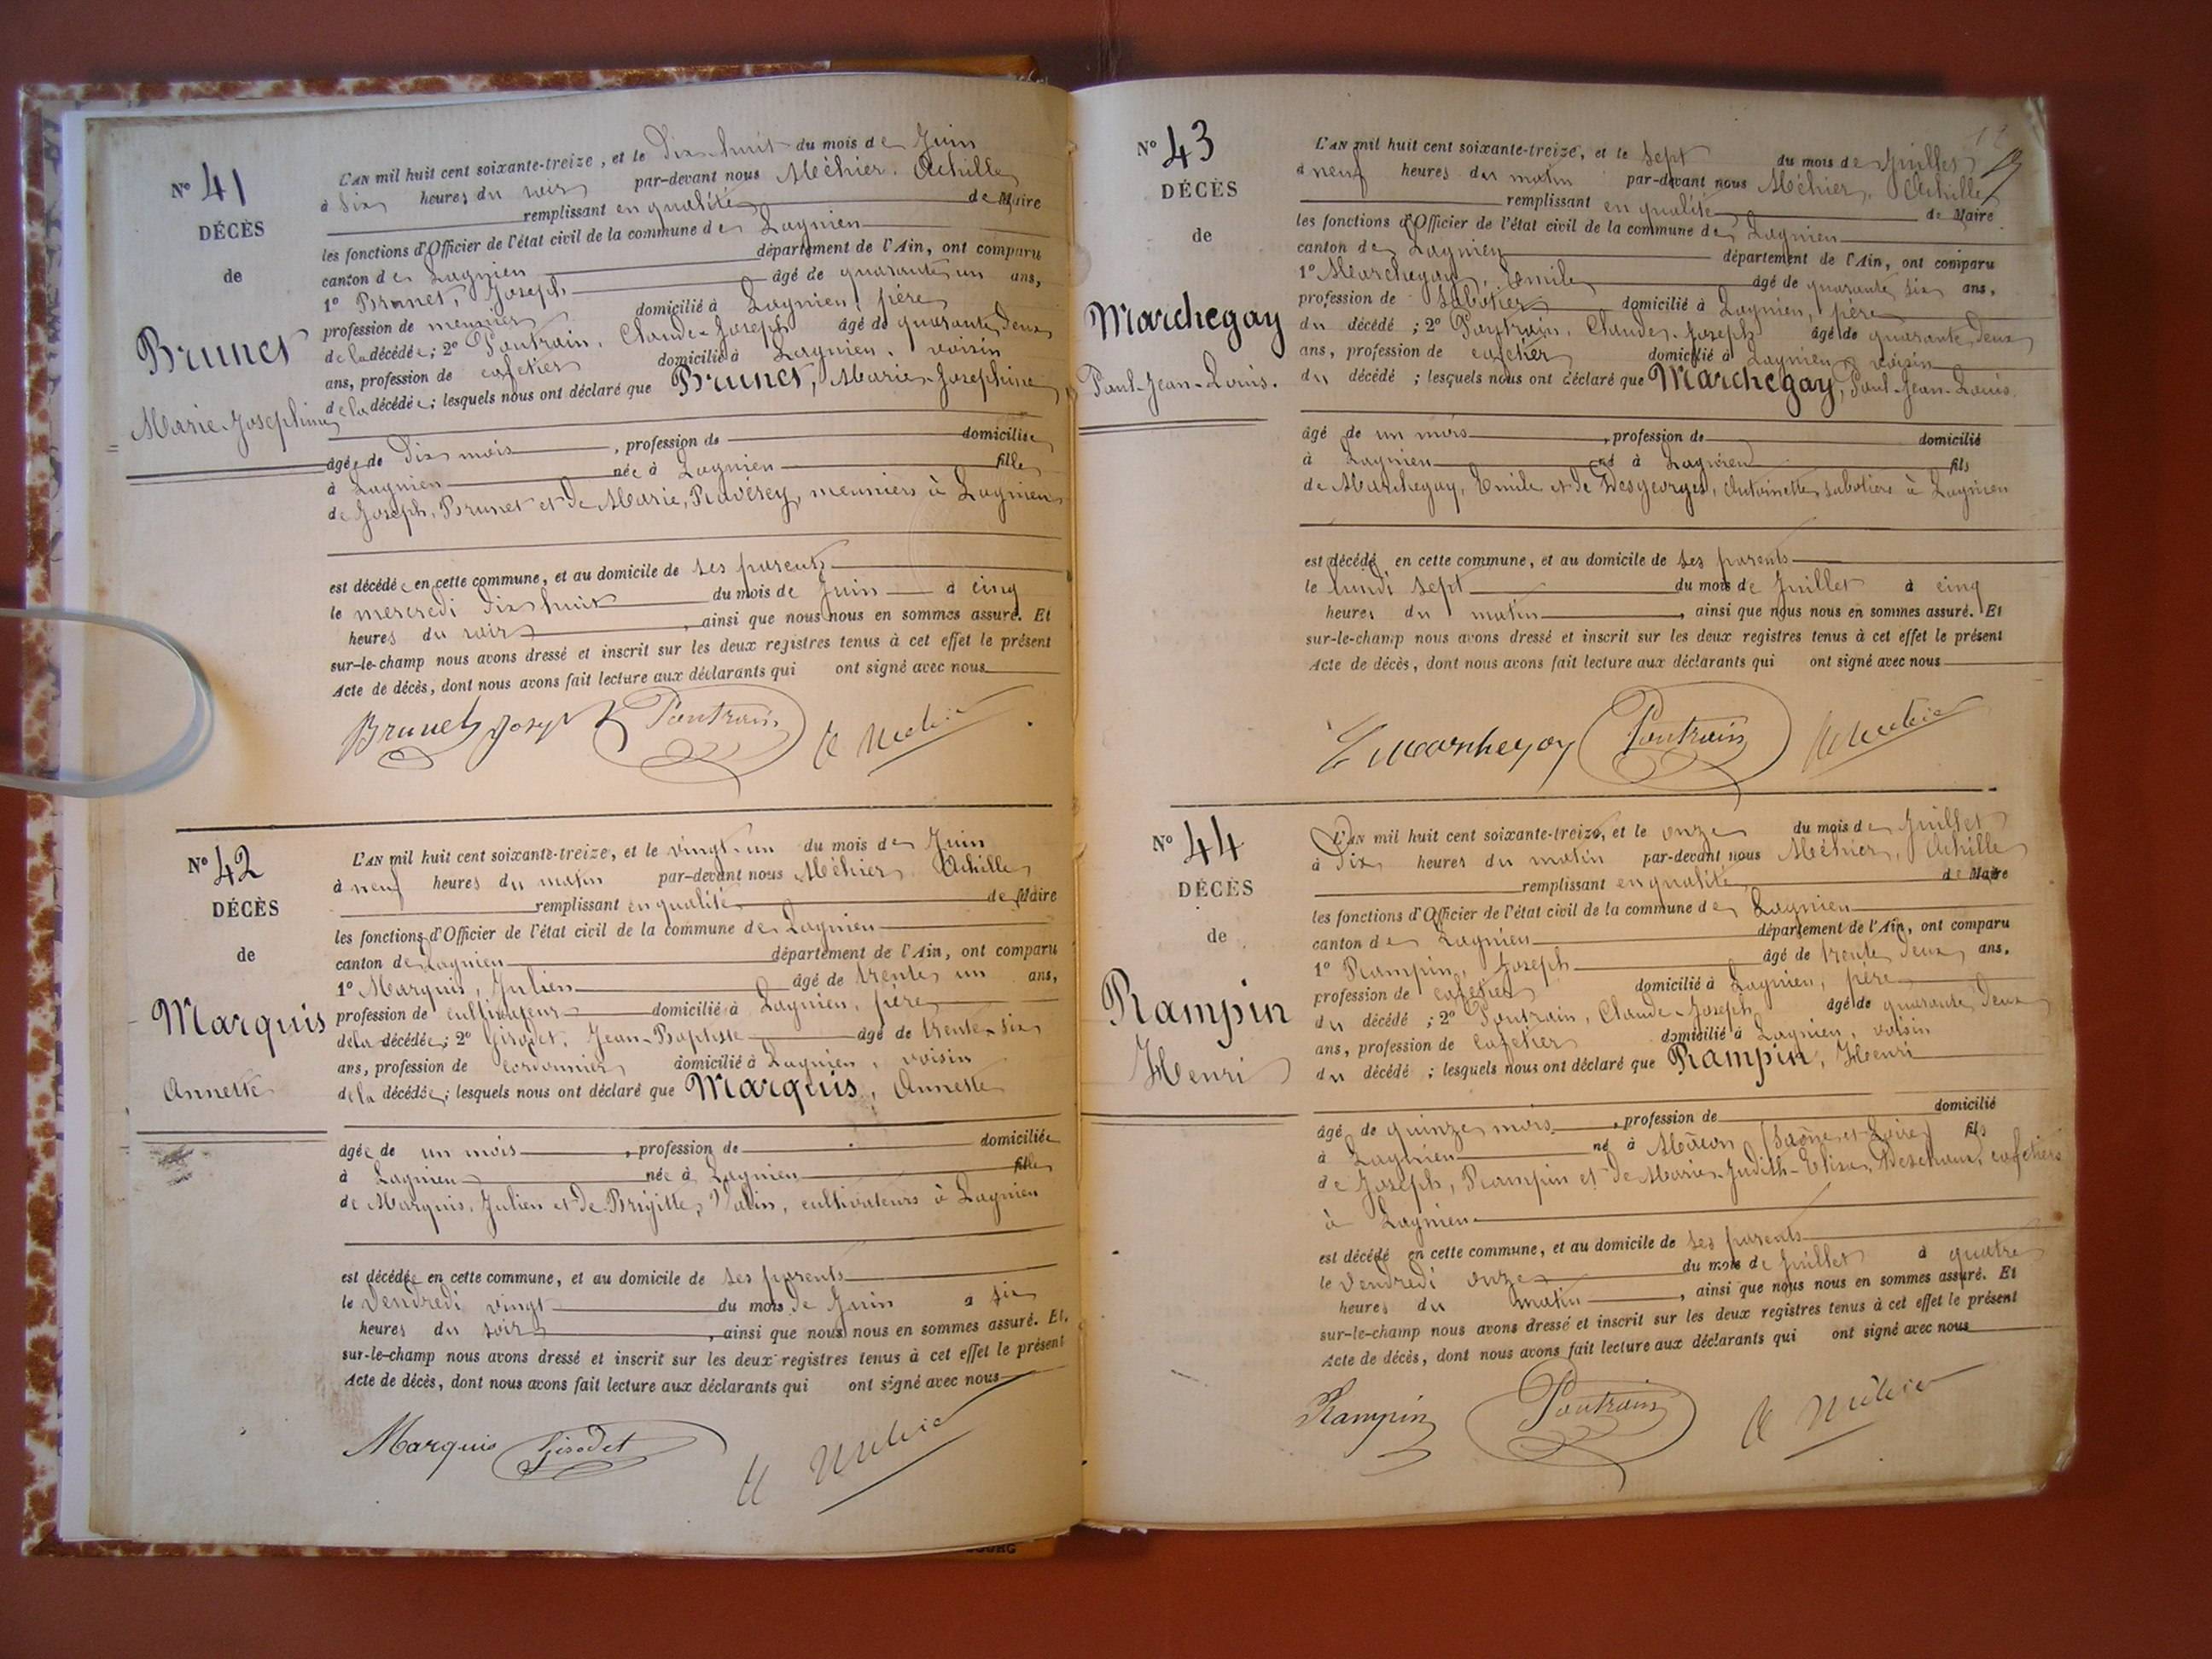 N° 41
DÉCÈS
de
Brunet
Marie-Josephine
L'AN mil huit cent soixante-treize, et le Dix-huit du mois de Juin
à six heures du soir par-devant nous Méhier, Achille
remplissant en qualité de Maire
les fonctions d'Officier de l'état civil de la commune de Lagnieu
canton de Lagnieu département de l'Ain, ont comparu
1° Brunet, Joseph âgé de quarante un ans,
profession de meunier domicilié à Lagnieu, père
de la décédée; 2° Poutrain, Claude-Joseph âgé de quarante deux
ans, profession de cafetier domicilié à Lagnieu, voisin
de la décédée; lesquels nous ont déclaré que Brunet, Marie-Josephine
âgée de Dix mois, profession de domiciliée
à Lagnieu née à Lagnieu fille
de Joseph, Brunet et de Marie, Ravérey, meuniers à Lagnieu
est décédée en cette commune, et au domicile de ses parents
le mercredi dix huit du mois de Juin à cinq
heures du soir, ainsi que nous nous en sommes assuré. Et
sur-le-champ nous avons dressé et inscrit sur les deux registres tenus à cet effet le présent
Acte de décès, dont nous avons fait lecture aux déclarants qui ont signé avec nous
Brunet Joseph Poutrain A Méhier
N° 42
DÉCÈS
de
Marquis
Annette
L'AN mil huit cent soixante-treize, et le vingt-un du mois de Juin
à neuf heures du matin par-devant nous Méhier Achille
remplissant en qualité de Maire
les fonctions d'Officier de l'état civil de la commune de Lagnieu
canton de Lagnieu département de l'Ain, ont comparu
1° Marquis, Julien âgé de trente un ans,
profession de cultivateur domicilié à Lagnieu, père
de la décédée; 2° Girodet, Jean-Baptiste âgé de trente-six
ans, profession de Cordonnier domicilié à Lagnieu, voisin
de la décédée; lesquels nous ont déclaré que Marquis, Annette
âgée de un mois, profession de domiciliée
à Lagnieu née à Lagnieu fille
de Marquis, Julien et de Brigitte, Valin, cultivateurs à Lagnieu
est décédée en cette commune, et au domicile de ses parents
le Vendredi vingt du mois de Juin à six
heures du soir, ainsi que nous nous en sommes assuré. Et,
sur-le-champ nous avons dressé et inscrit sur les deux registres tenus à cet effet le présent
Acte de décès, dont nous avons fait lecture aux déclarants qui ont signé avec nous
Marquis Girodet A Méhier
N° 43
DÉCÈS
de
Marchegay
Paul-Jean-Louis.
L'AN mil huit cent soixante-treize, et le sept du mois de Juillet
à neuf heures du matin par-devant nous Méhier, Achille
remplissant en qualité de Maire
les fonctions d'Officier de l'état civil de la commune de Lagnieu
canton de Lagnieu département de l'Ain, ont comparu
1° Marchegay, Emile âgé de quarante six ans,
profession de sabotier domicilié à Lagnieu, père
du décédé; 2° Poutrain, Claude-Joseph âgé de quarante deux
ans, profession de cafetier domicilié à Lagnieu voisin
du décédé; lesquels nous ont déclaré que Marchegay, Paul-Jean-Louis.
âgé de un mois, profession de domicilié
à Lagnieu né à Lagnieu fils
de Marchegay, Emile et de Desgeorges, Antoinette sabotiers à Lagnieu
est décédé en cette commune, et au domicile de ses parents
le lundi sept du mois de Juillet à cinq
heures du matin, ainsi que nous nous en sommes assuré. Et
sur-le-champ nous avons dressé et inscrit sur les deux registres tenus à cet effet le présent
Acte de décès, dont nous avons fait lecture aux déclarants qui ont signé avec nous
E Marchegay Poutrain A Méhier
N° 44
DÉCÈS
de
Rampin
Henri
L'AN mil huit cent soixante-treize, et le onze du mois de Juillet
à Dix heures du matin par-devant nous Méhier, Achille
remplissant en qualité de Maire
les fonctions d'Officier de l'état civil de la commune de Lagnieu
canton de Lagnieu département de l'Ain, ont comparu
1° Rampin, Joseph âgé de trente deux ans,
profession de cafetier domicilié à Lagnieu, père
du décédé; 2° Poutrain, Claude-Joseph âgé de quarante deux
ans, profession de Cafetier domicilié à Lagnieu, voisin
du décédé; lesquels nous ont déclaré que Rampin, Henri
âgé de quinze mois, profession de domicilié
à Lagnieu né à Mâcon (Saône et Loire) fils
de Joseph, Rampin et de Marie-Judith-Elisa, Deschaux, cafetiers
à Lagnieu
est décédé en cette commune, et au domicile de ses parents
le Vendredi onze du mois de Juillet à quatre
heures du matin, ainsi que nous nous en sommes assuré. Et
sur-le-champ nous avons dressé et inscrit sur les deux registres tenus à cet effet le présent
Acte de décès, dont nous avons fait lecture aux déclarants qui ont signé avec nous
Rampin Poutrain A Méhier